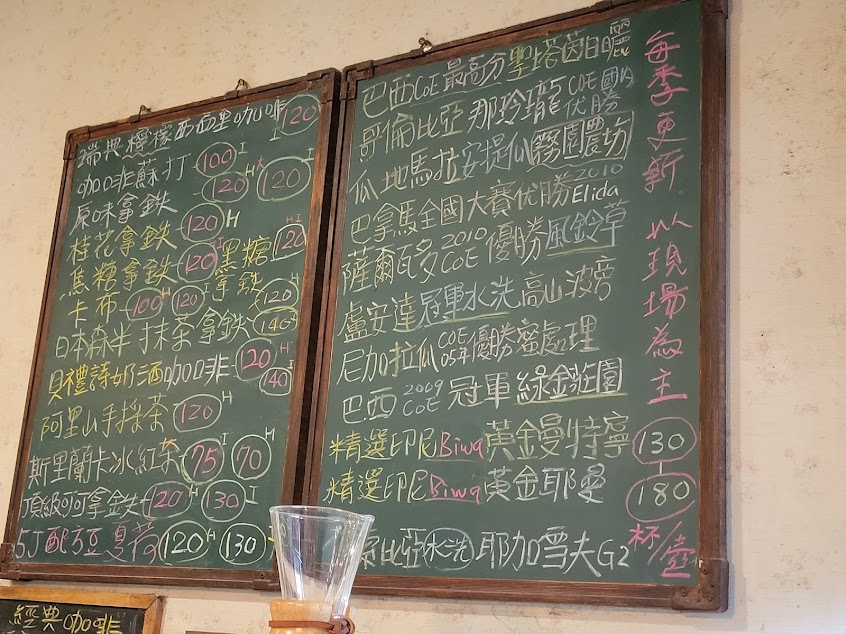 瑞典檸檬西西里咖啡 120
咖啡蘇打 100 I
原味拿鐵 120 H 120 I
桂花拿鐵 120 H
焦糖拿鐵 120 HI 黑糖拿鐵 120 HI
卡布 100 H 120 I 120 H
日本森半抹茶拿鐵 140 I
貝禮詩奶酒咖啡 120 H 140 I
阿里山手採茶 120 H
斯里蘭卡冰紅茶 75 I 70 H
頂級可可拿鐵 120 H 130 I
120 H 130
經典咖啡
巴西 COE 最高分 聖塔茵日曬
哥倫比亞 那玲瓏 COE 國內優勝
瓜地馬拉 安提瓜 霧園農場
巴拿馬全國大賽優勝 2010 Elida
薩爾瓦多 2010 COE 優勝 風鈴草
盧安達 冠軍水洗 高山波旁
尼加拉瓜 COE 05年 優勝 蜜處理
巴西 2009 COE 冠軍 綠金莊園
精選印尼 Biwa 黃金曼特寧
精選印尼 Biwa 黃金耶曼
比亞 水洗 耶加雪夫 G2
每季更新 以現場為主
130 - 180 杯/壺